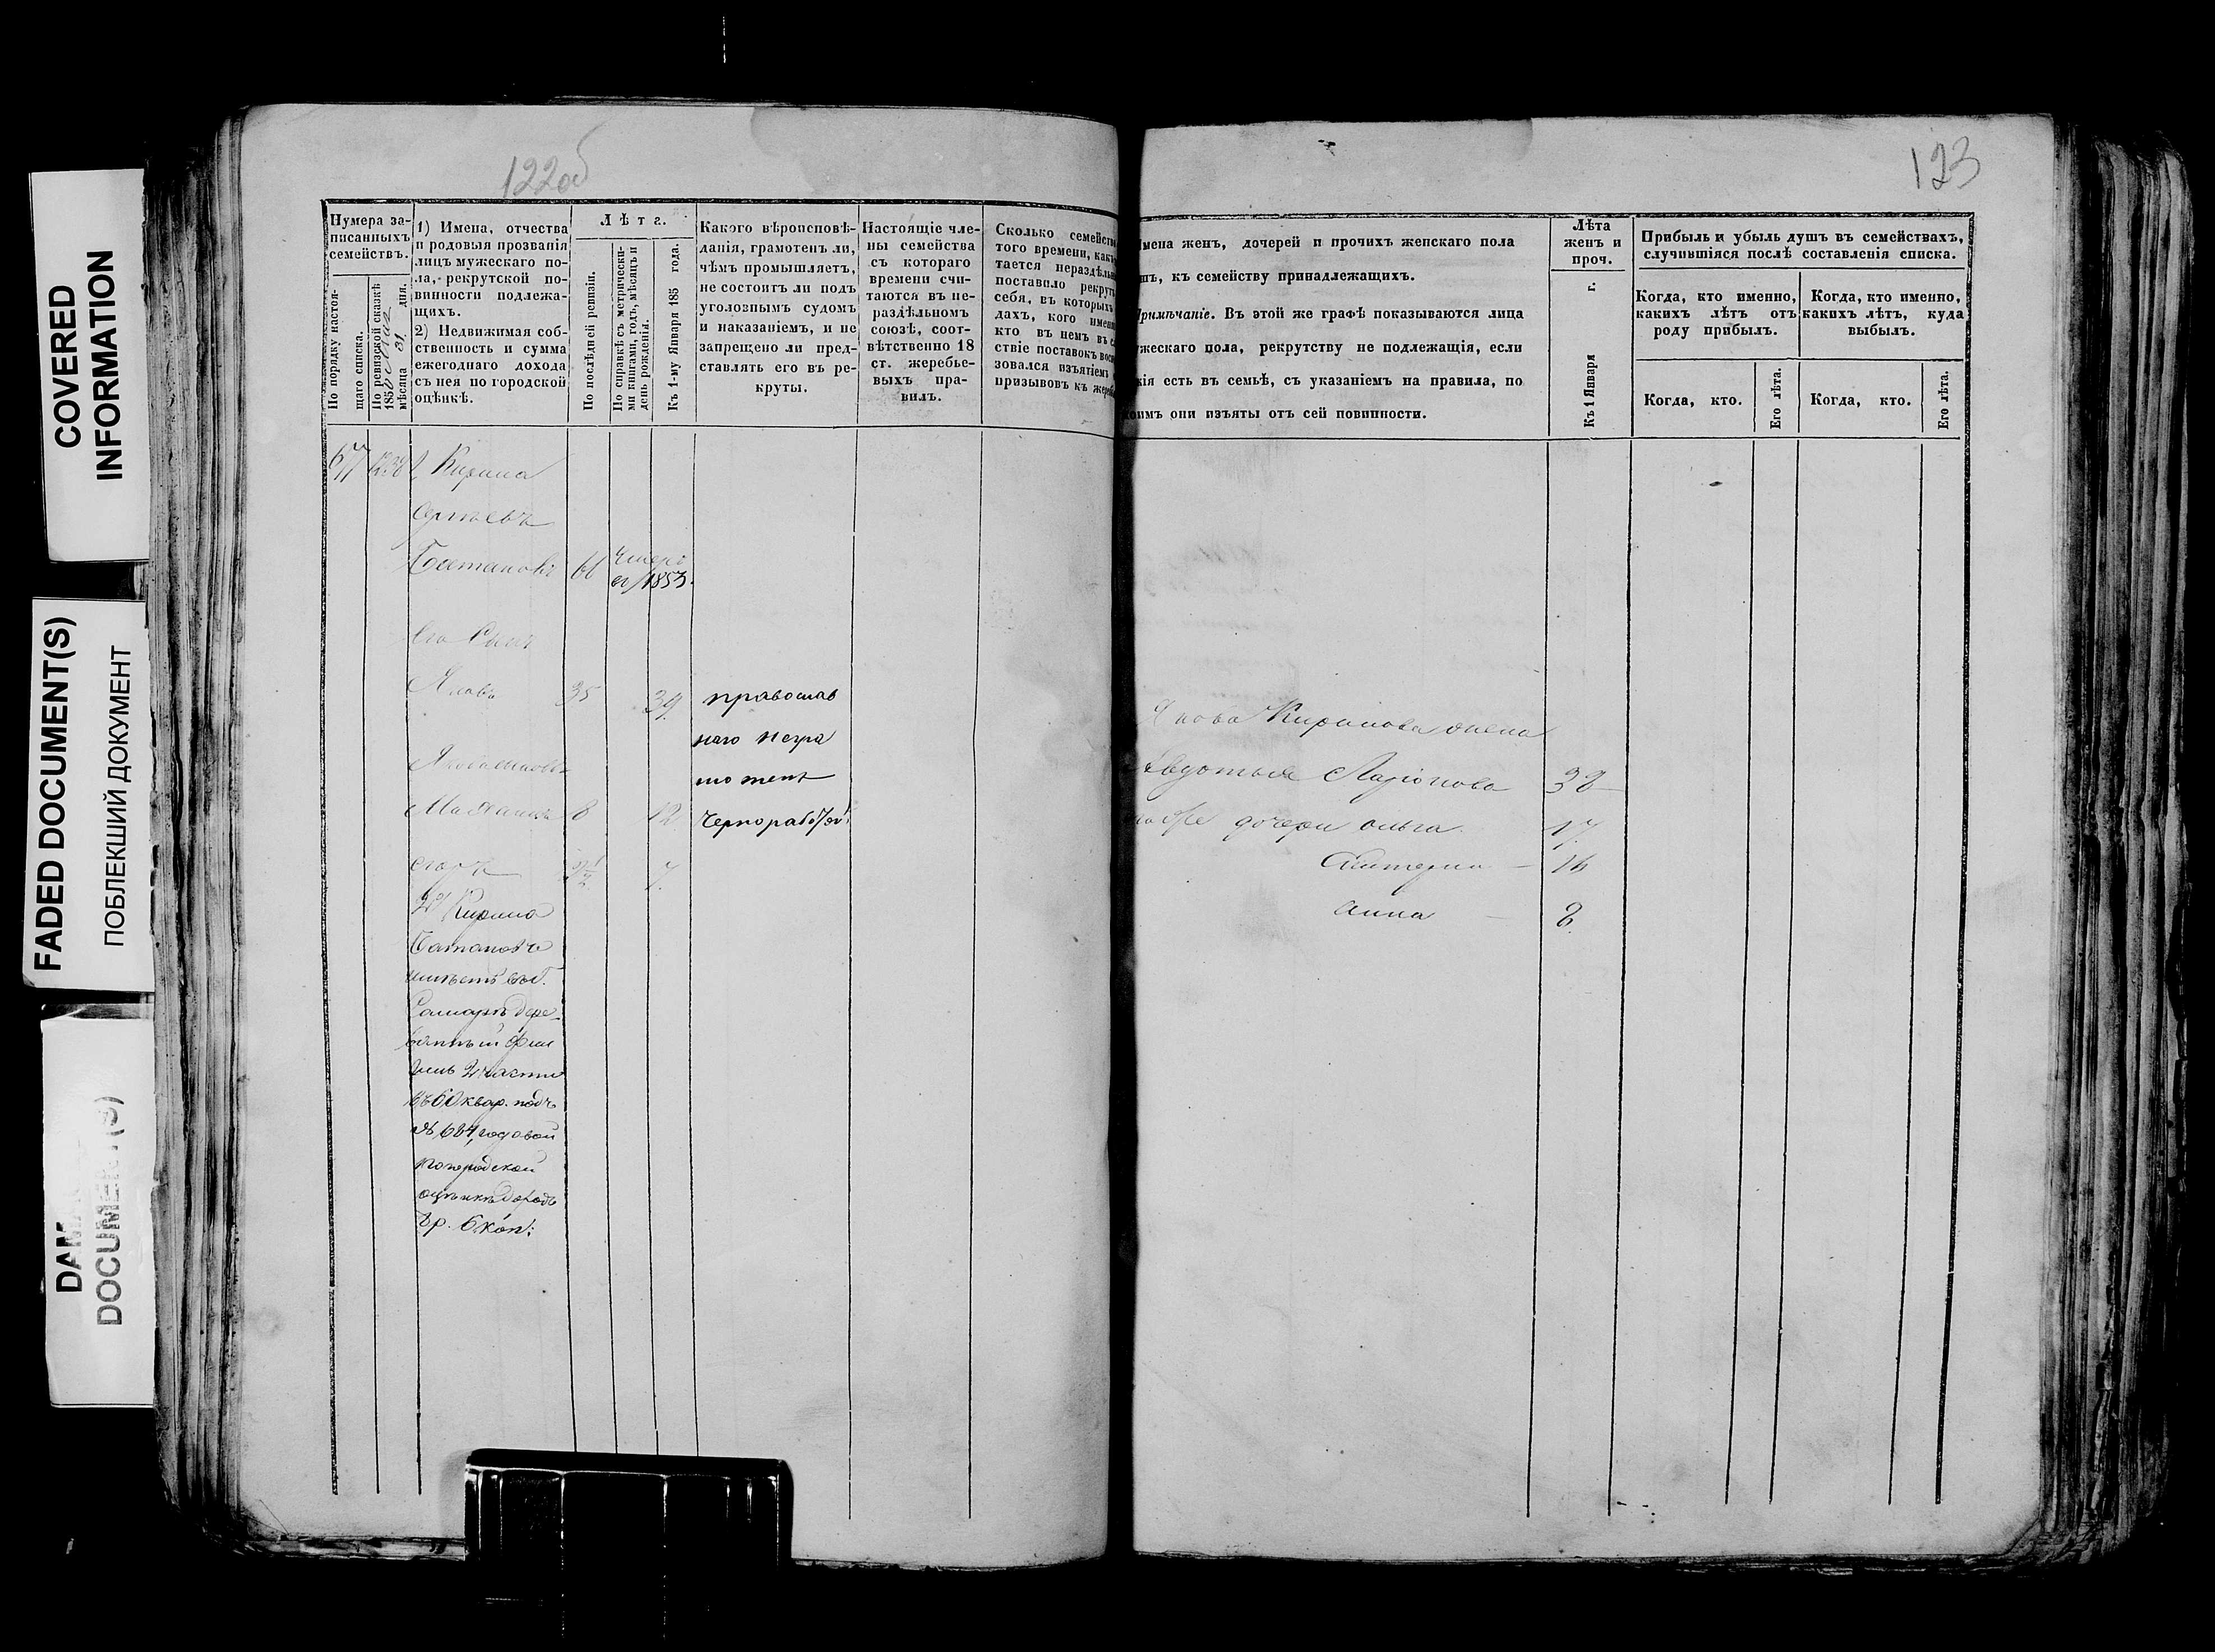 COVERED
INFORMATION
FADED DOCUMENT(S)
ПОБЛЕКШИЙ ДОКУМЕНТ
DOCUMENT(S)
122об
Нумера за-
писанныхъ
семействъ.
По порядку настоя-
щаго списка.
По ревизской сказкѣ
185
мѣсяца 31 дня.
1) Имена, отчества
и родовыя прозванія
лицъ мужескаго по-
ла, рекрутской по-
винности подлежа-
щихъ.
2) Недвижимая соб-
ственность и сумма
ежегоднаго дохода
съ нея по городской
оцѣнкѣ.
Лѣта.
По послѣдней ревизіи.
По справкѣ съ метрически-
ми книгами, годъ, мѣсяцъ и
день рожденія.
Къ 1-му Января 185 года.
Какого вѣроисповѣ-
данія, грамотенъ ли,
чѣмъ промышляетъ,
не состоитъ ли подъ
уголовнымъ судомъ
и наказаніемъ, и не
запрещено ли пред-
ставлять его въ ре-
круты.
Настоящіе чле-
ны семейства
съ котораго
времени счи-
таются въ не-
раздѣльномъ
союзѣ, соот-
вѣтственно 18
ст. жеребье-
выхъ пра-
вилъ.
Сколько семейство
того времени, какъ
тается нераздѣль
поставило рекрут
себя, въ которыхъ
дахъ, кого имен
кто въ немъ въ с
ствіе поставокъ вос
зовался изъятіемъ
призывовъ къ жереб
677
Кирила
Сергѣевъ
Батановъ 61 Умеръ
въ 1853.
Его Сынъ
Яковъ 35 39 православ
наго негра
мотенъ
8 12 Чернорабочій
Егоръ 7.
2) Кирила
Батановъ
имѣетъ въ г.
Самарѣ дере-
вянный фли
гель 2 части
въ 60 квар. подъ
№ 684, годовой
по городской
оцѣнкѣ доходъ
р. 6 коп:
123
мена женъ, дочерей и прочихъ женскаго пола
шъ, къ семейству принадлежащихъ.
римѣчаніе. Въ этой же графѣ показываются лица
ужескаго пола, рекрутству не подлежащія, если
кія есть въ семьѣ, съ указаніемъ на правила, по
оимъ они изъяты отъ сей повинности.
Лѣта
женъ и
проч.
Къ 1 Января г.
Прибыль и убыль душъ въ семействахъ,
случившіяся послѣ составленія списка.
Когда, кто именно,
какихъ лѣтъ отъ
роду прибылъ.
Когда, кто именно,
какихъ лѣтъ, куда
выбылъ.
Когда, кто.
Его лѣта.
Когда, кто.
Его лѣта.
Якова Кирилова жена
Авдотья Ларіонова 38
дочери Ольга 17.
Катерина 16
Анна 8.